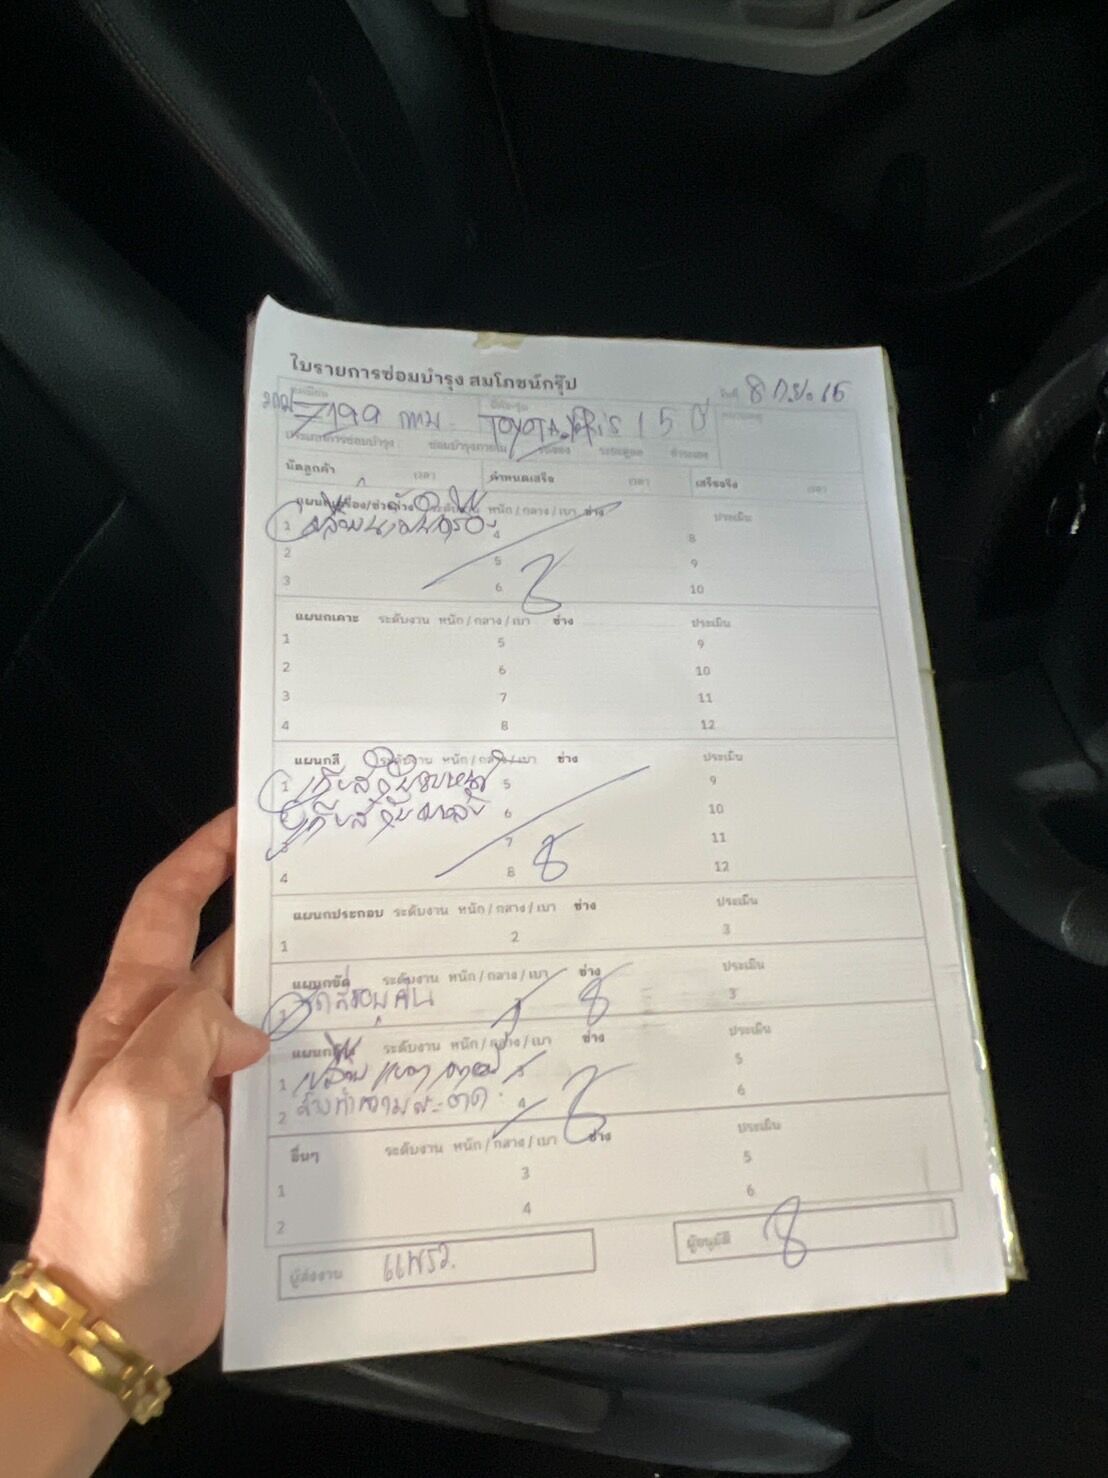 ใบรายการซ่อมบำรุง สมโภชน์กรุ๊ป
วันที่ 8 ก.ย. 16
7199 กทม. TOYOTA YARiS 1 5
ประเภทการซ่อมบำรุง ซ่อมบำรุงภายใน
นัดลูกค้า เวลา กำหนดเสร็จ เวลา เสร็จจริง เวลา
ระดับงาน หนัก / กลาง / เบา ช่าง ประเมิน
1 เปลี่ยนน้ำมันเครื่อง 4 8
2 5 9
3 6 10
แผนกเคาะ ระดับงาน หนัก / กลาง / เบา ช่าง ประเมิน
1 5 9
2 6 10
3 7 11
4 8 12
แผนกสี ระดับงาน หนัก / กลาง / เบา ช่าง ประเมิน
1 5 9
6 10
3 7 11
4 8 12
แผนกประกอบ ระดับงาน หนัก / กลาง / เบา ช่าง ประเมิน
1 2 3
แผนกขัด ระดับงาน หนัก / กลาง / เบา ช่าง ประเมิน
1 ขัดสีรอบคัน 3
ระดับงาน หนัก / กลาง / เบา ช่าง ประเมิน
1 เปลี่ยน 3 5
2 ล้างทำความสะอาด 4 6
อื่นๆ ระดับงาน หนัก / กลาง / เบา ช่าง ประเมิน
1 3 5
2 4 6
ผู้สั่งงาน แพรว. ผู้อนุมัติ